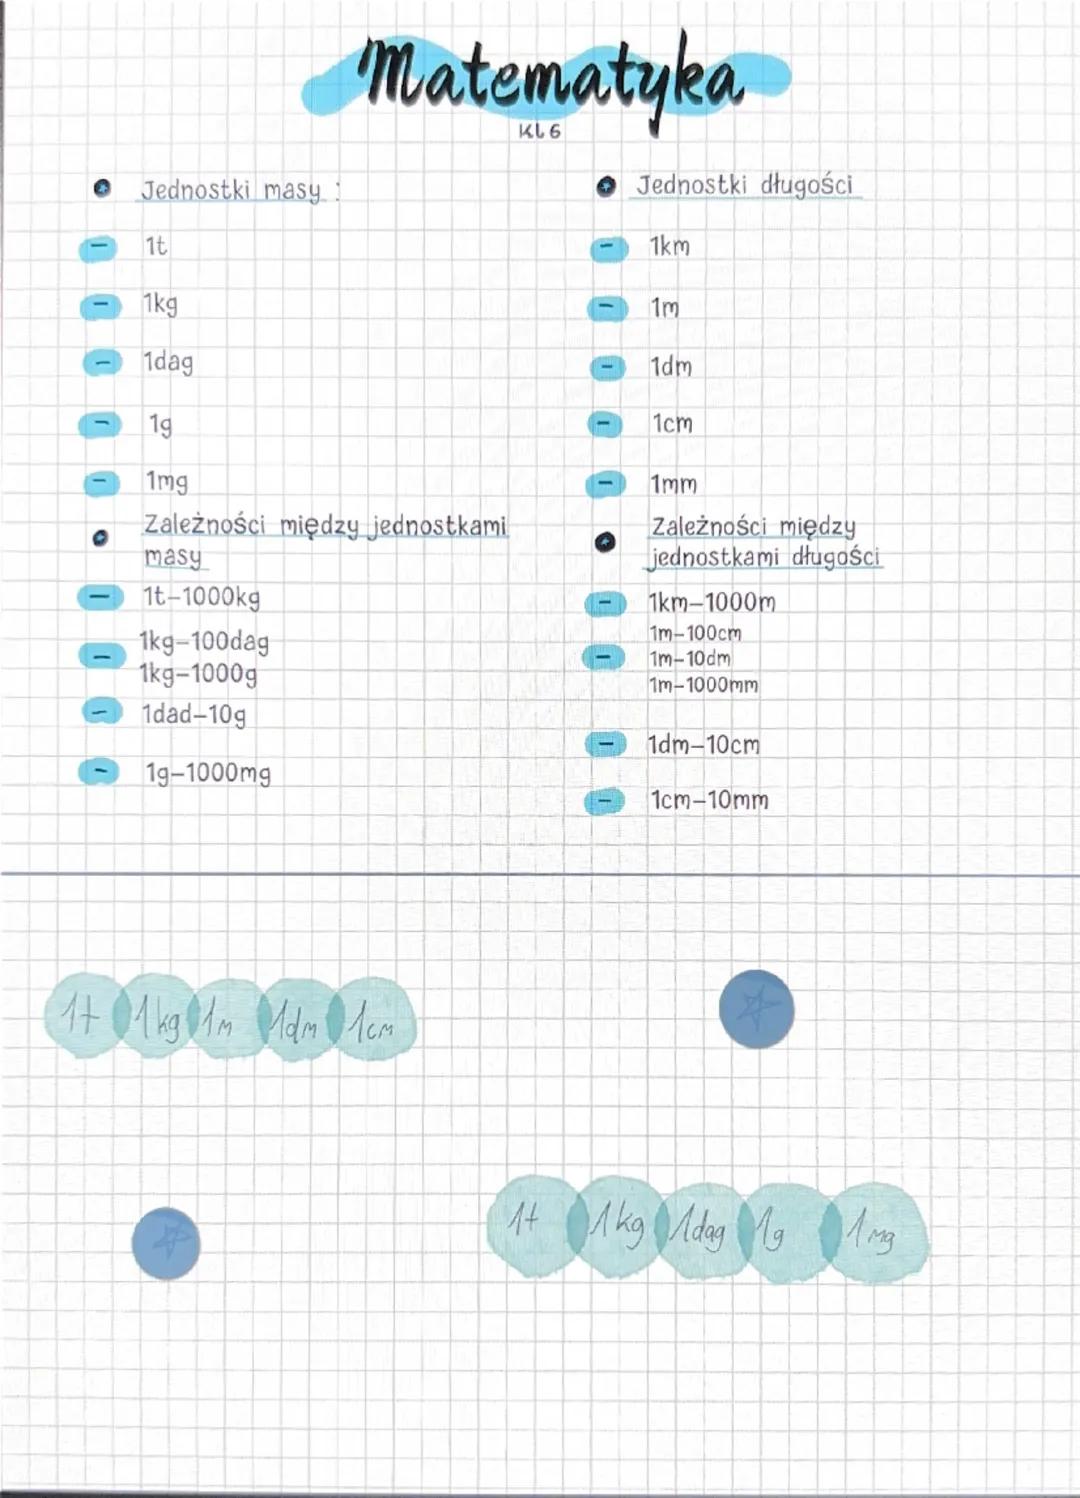 Matematyka
KL 6
Jednostki masy :
- 1t
- 1kg
- 1dag
- 1g
- 1mg
Zależności między jednostkami
masy
- 1t-1000kg
- 1kg-100dag
1kg-1000g
- 1dad-10g
- 1g-1000mg
Jednostki długości
- 1km
- 1m
- 1dm
- 1cm
- 1mm
Zależności między
jednostkami długości
- 1km-1000m
1m-100cm
- 1m-10dm
1m-1000mm
- 1dm-10cm
- 1cm-10mm
1t 1kg 1m 1dm 1cm
1t 1kg 1dag 1g 1mg